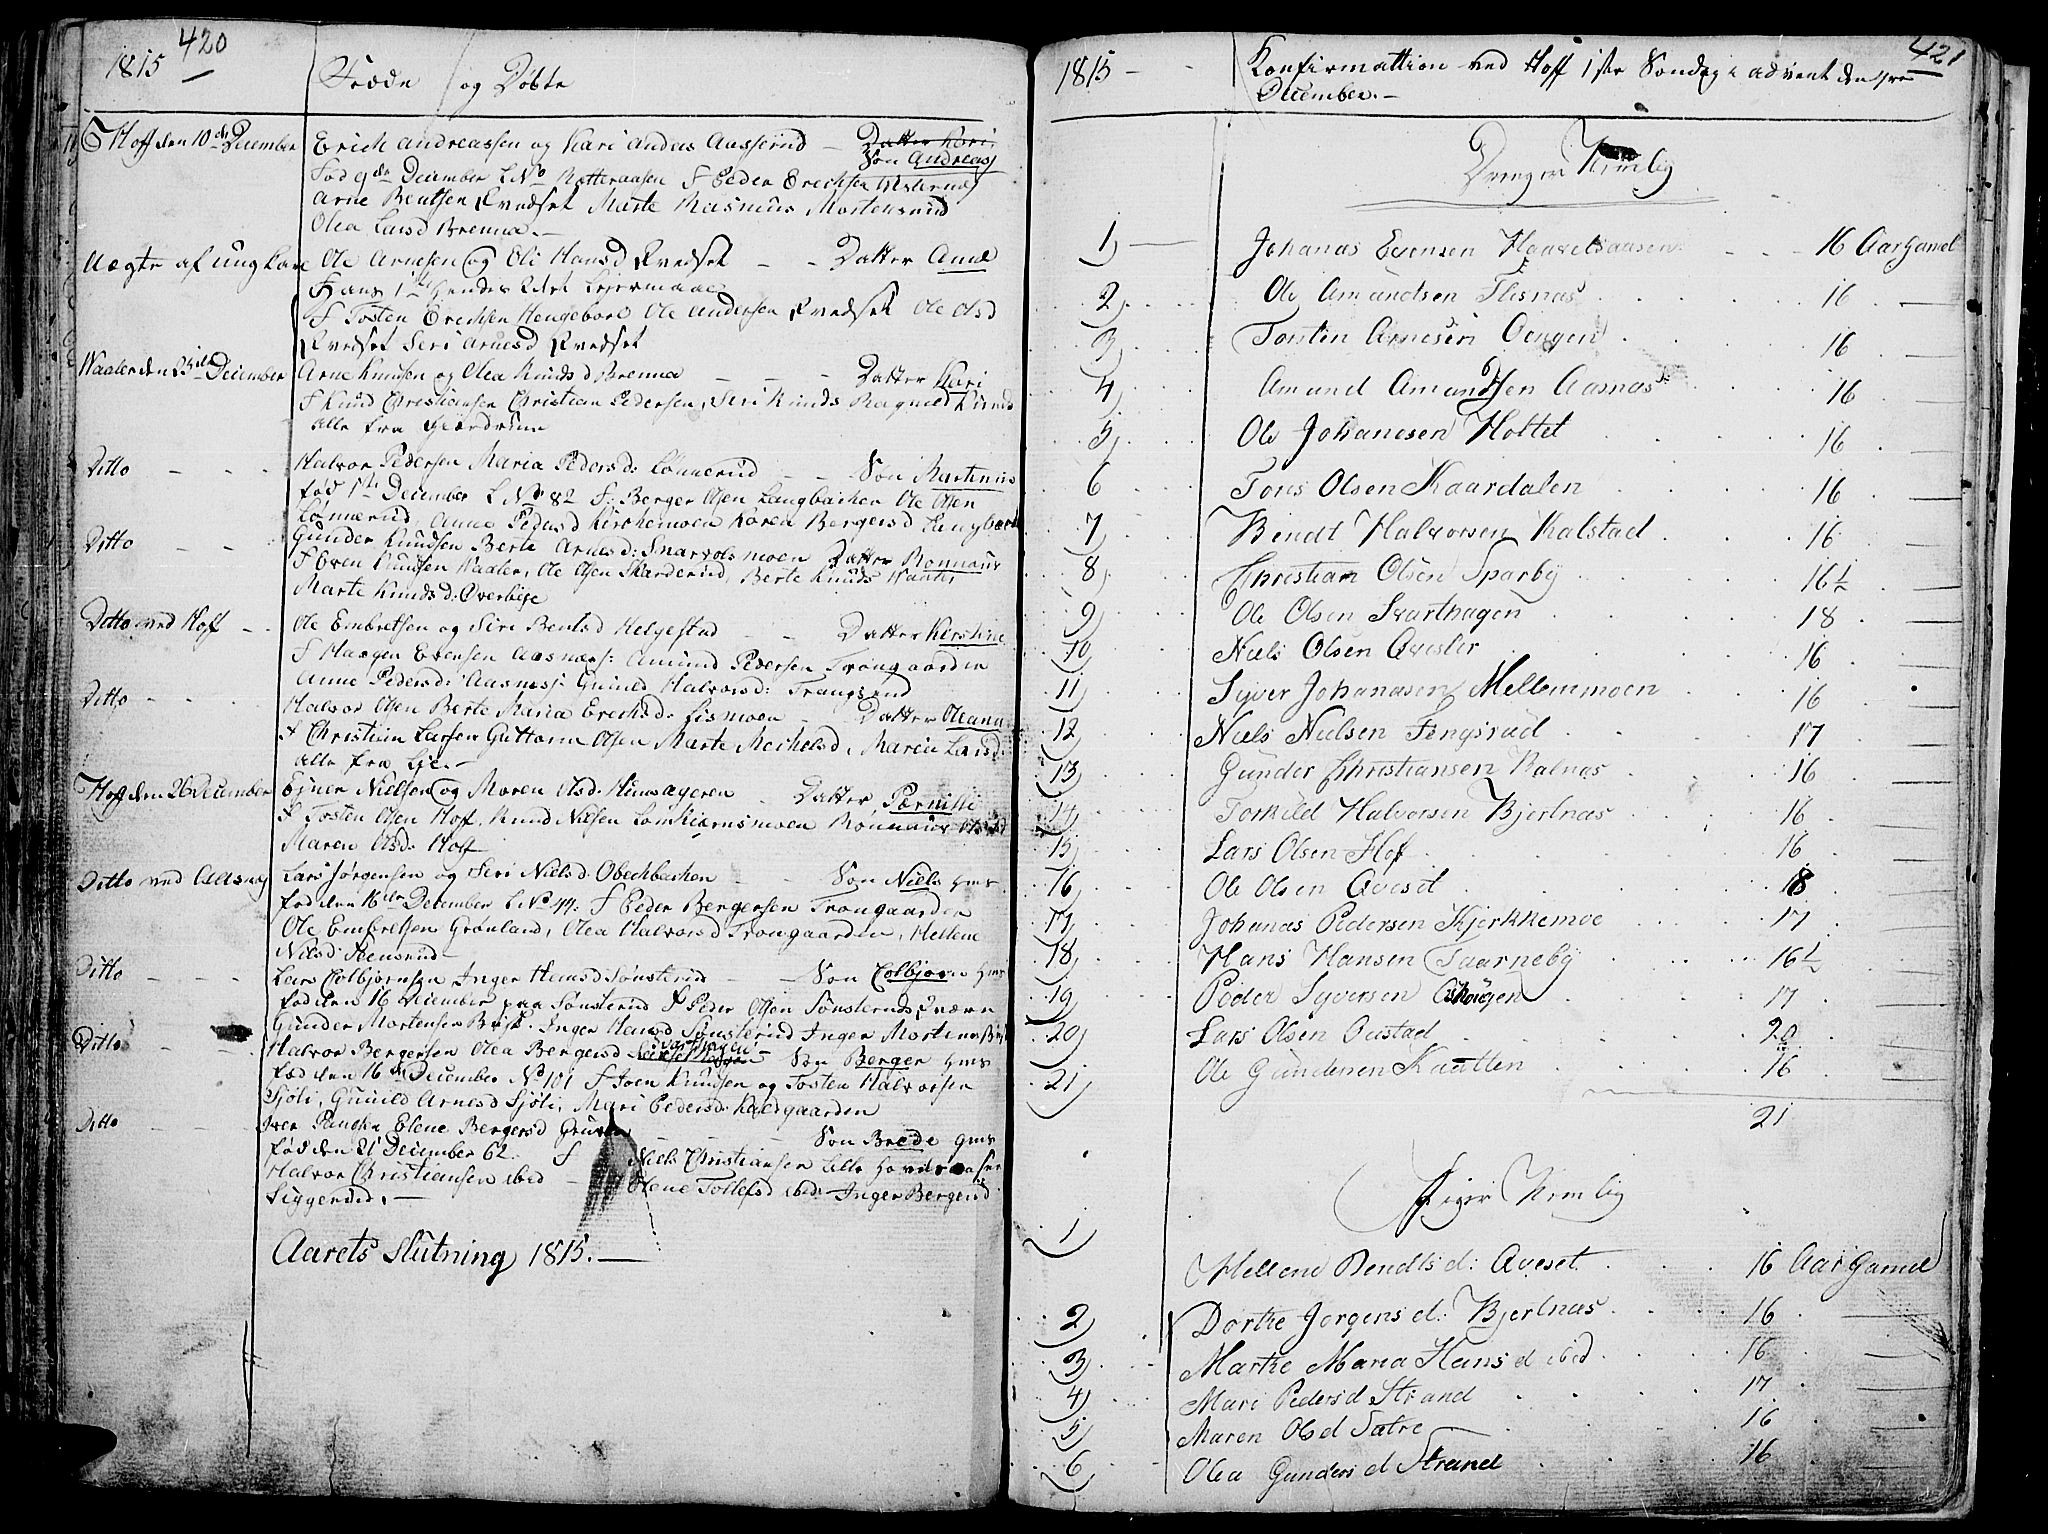 420
1815
Fødte og Døbte
Hoff den 10de December
Erich Andreassen og Kari Anders Aasserud - Datter Kari
Søn Andreas
Fød 9de December L No F Peder Erichsen
Arne Bentsen Qvedset Marte Rasmus Mortensrud
Olea Larsd Brenna. -
Aegte af ung kare
Ole Arnesen og Eli Hansd Qvedset - - Datter Anne
Hans 1te hendes Lejermaal
F Tosten Erichsen Hengebore Ole Andersen Qvedset Ole Olsd
Qvedset Seri Arnesd Qvedset
Waaler den December
Arne Knusen og Olea Knudsd Brenna - - - Datter Kari
F Knud Christiansen Christian Pedersen, Seri Knuds Ragnild Knuds
alle fra Gierdrum
Ditto - - -
Halvor Pedersen Maria Pedersd: Lønnerud - - Søn Martinus
fød 1te December L No 82 F: Berger Olsen Langbacken Ole Olsen
Lønnerud Anne Pedersd Kirchemoen Karen Bergersd
Ditto - - -
Gunder Knudsen Berte Arnesd: Snarvolsmoen Datter Ronnaug
F Even Knudsen Waaler, Ole Olsen Skarderud, Berte Knuds Waaler
Marte Knudsd: Overbye
Ditto ved Hoff - -
Ole Embretsen og Siri Bentsd Helgestad - - Datter Kirstine
F Haagen Evensen Aasnæs: Amund Pedersen Trongaarden
Anne Pedersd: Aasnes: Gunild Halvorsd: Trangsrud
Ditto - - -
Halvor Olsen Berte Maria Erichsd: Lismoen - Datter Oleana
F Christian Larsen Guttorm Olsen Marte Mechelsd, Maria Larsd
alle fra -
Hoff den 26 December
Ejner Nielsen og Maren Olsd: - Datter Pernille
F Tosten Olsen Hoff, Knud Nielsen Lomkiernsmoen Rønnaug Olsd
Maren Olsd: Hoff
Ditto ved Aasnæs
Lars Jørgensen og Seri Nielsd Obechbachen - - Søn Niels
fød den 16de December L No 44. F Peder Bergersen Trongaarden
Ole Embretsen Grønland, Olea Halvorsd Trongaarden, Hellene
Nilsd Steensrud -
Ditto - - -
Lars Colbjørnsen Inger Hansd Sønsterud - - Søn Colbjørn
fød den 16 December paa Sønsterud F Peder Olsen Sønsterud
Gunder Mortensen Inger Hansd Sønsterud Inger Mortens
Ditto - - -
Halvor Bergersen Olea Bergersd Svarthagen - Søn Berger
fød den 16de December No 101 F Joen Knudsen og Tosten Halvorsen
Sjøli, Gunild Arnesd Sjøli, Mari Pedersd: Kaldgaarden
Ditto - - -
Iver Elene Bergersd - - Søn Brede
fød den 21 December 62. F Niels Christiansen Lille
Halvor Christiansen ibid - Olene Tollefsd ibid: Inger Bergersd
Siggerud. -
Aarets Slutning 1815. -
421
1815 - -
Konfirmattion ved Hoff 1ste Søndag i advent den 3de
December. -
Drenger Nemlig
1) Johanas Evensen Haavelsaasen - - 16 Aar Gamel
2) Ole Amundsen Flisnas 16
3) Torsten Arnesen Oengen 16
4) Amund Amundsen Aasnas 16
5) Ole Johanesen Holtet 16
6 Tøris Olsen Kaardalen 16
7) Bendt Halvorsen Kalstad 16
8) Christian Olsen Sparby 16½
9) Ole Olsen Svarthagen 18
10) Niels Olsen Qvesler 16
11) Syver Johanasen Mellemmoen 16
12) Niels Nielsen Fengsrud 17
13) Gunder Christiansen Kalnas 16
14) Torkild Halvorsen Kjerlnas 16
15) Lars Olsen Hof 16
16) Ole Olsen Qveset 18
17) Johanas Pedersen Kjerkkemoe 17
18) Hans Hansen Taarneby 16½
19) Peder Syversen Oshougen 17
20) Lars Olsen Oustad 20
21) Ole Gundersen Kaatten 16
21
Piger Nemlig
1) Hellene Bendts d: Qveset 16 Aar Gamel
2) Dorthe Jorgens d: Kjerlnas 16
3) Marthe Maria Hans d ibid 16
4) Mari Peders d Strand 17
5) Maren Ols d Satre 16
6) Olea Gunders d Strand 16